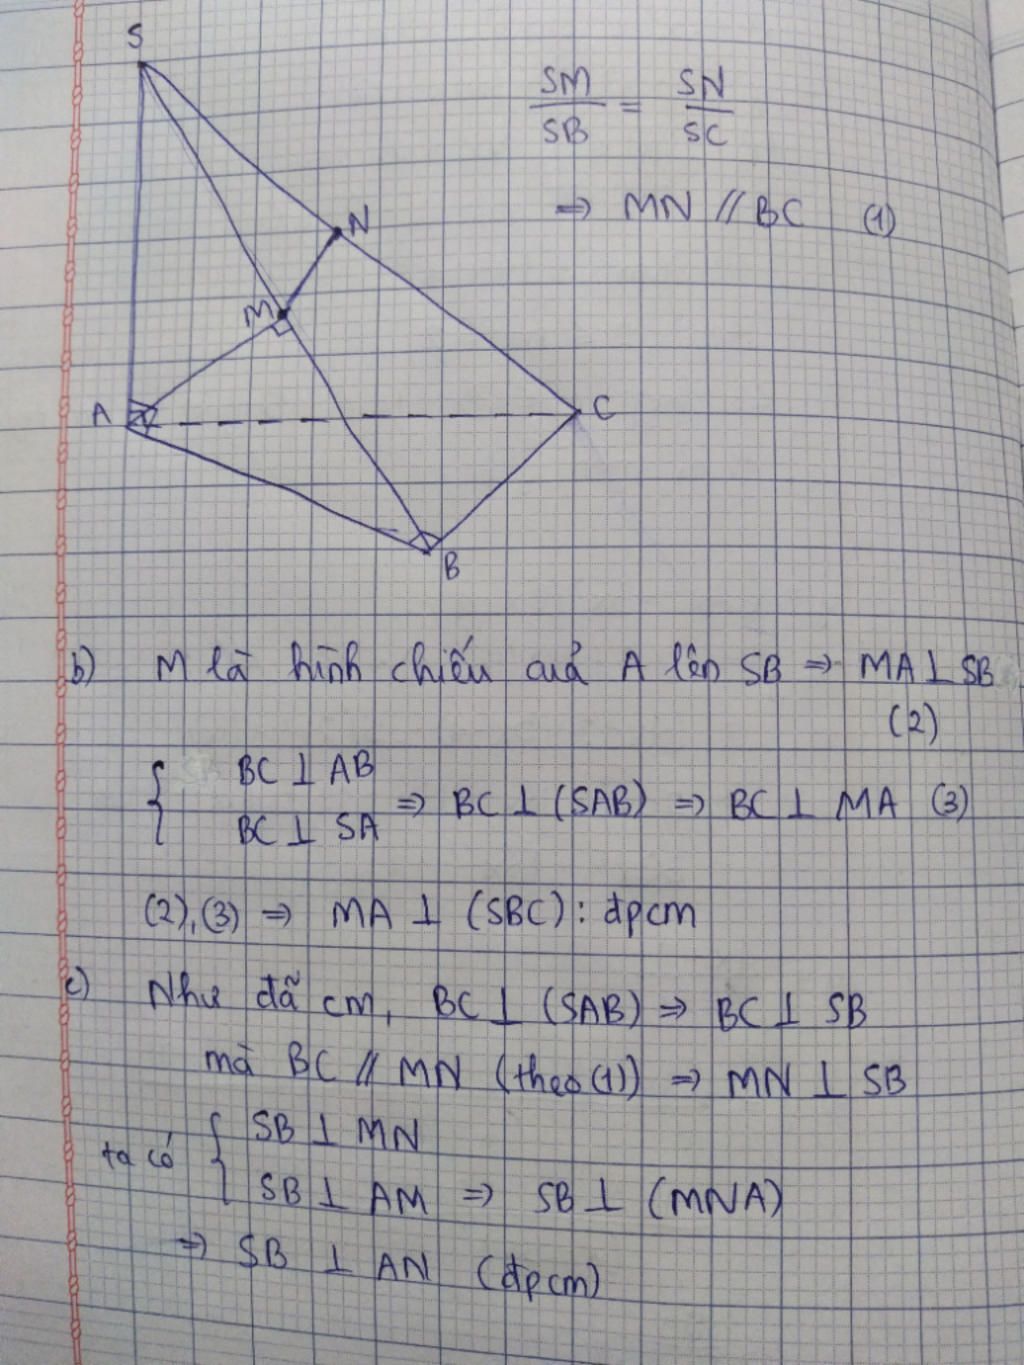 S
SM/SB = SN/SC
⇒ MN // BC (1)
N
M
A
C
B
b) M là hình chiếu cuả A lên SB ⇒ MA ⊥ SB
(2)
{ BC ⊥ AB
BC ⊥ SA ⇒ BC ⊥ (SAB) ⇒ BC ⊥ MA (3)
(2), (3) ⇒ MA ⊥ (SBC) : đpcm
c) Như đã cm, BC ⊥ (SAB) ⇒ BC ⊥ SB
mà BC // MN (theo (1)) ⇒ MN ⊥ SB
ta có { SB ⊥ MN
SB ⊥ AM ⇒ SB ⊥ (MNA)
⇒ SB ⊥ AN (đpcm)